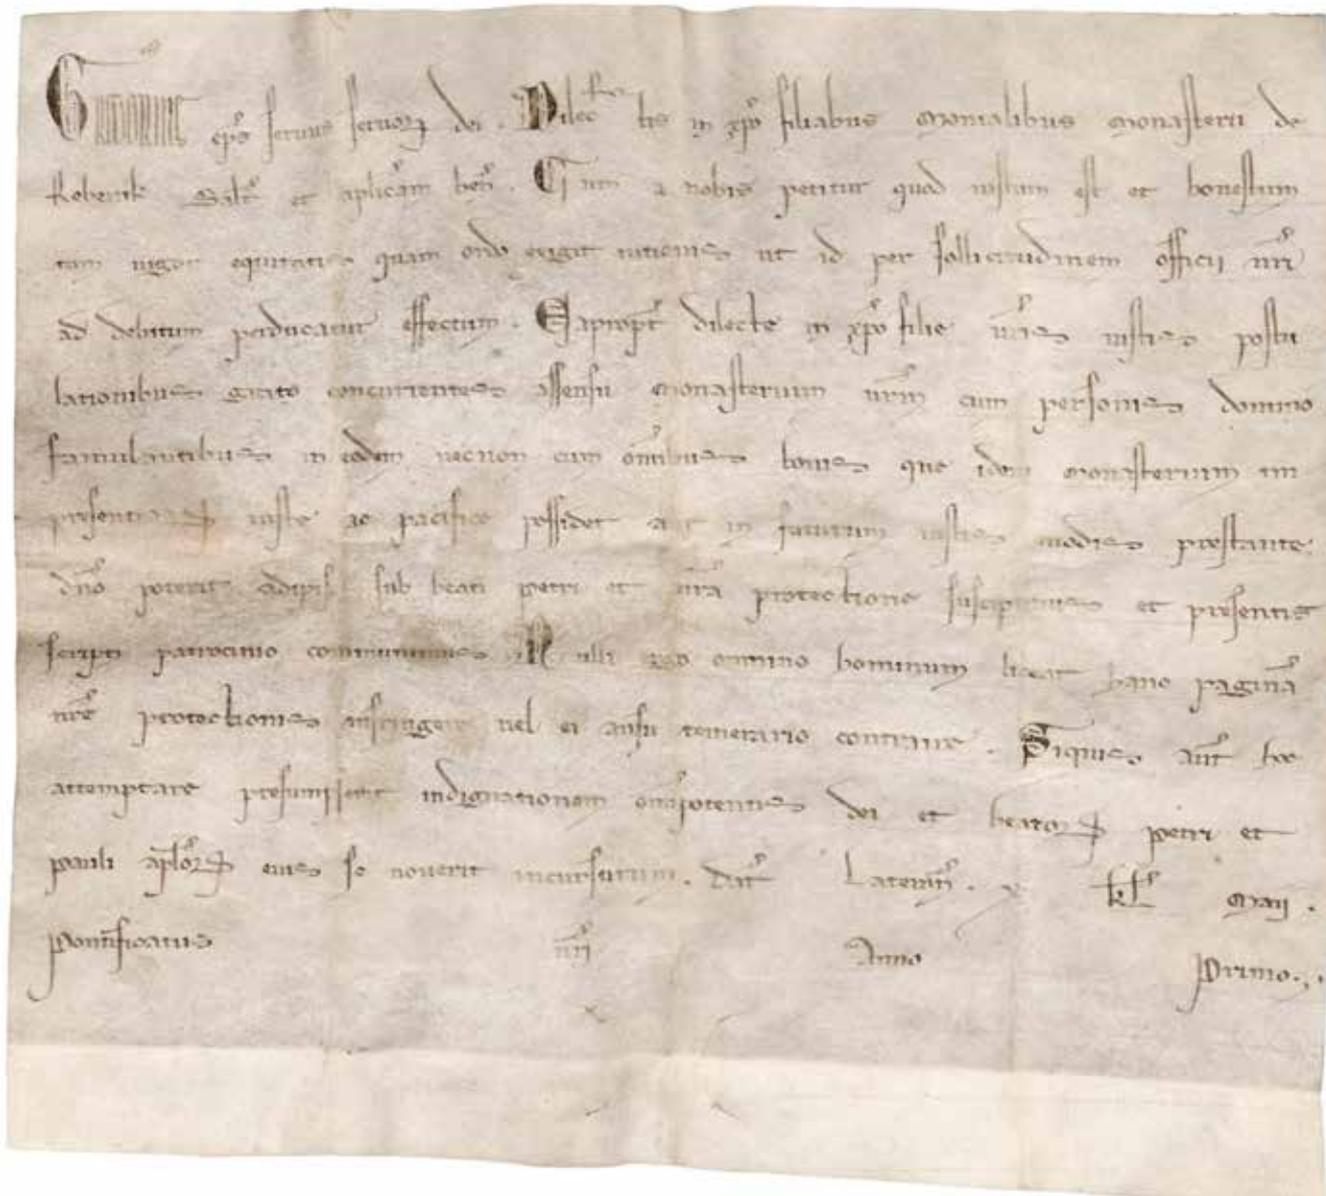 Gregorius ep̄s seruus seruoꝝ dei . Dilectis in xp̄o filiabus Monialibus Monasterii de
Salt̄ et aplicam ben̄ . Cum a nobis petitur quod iustum est et honestum
tam uigor equitatis quam ordo exigit rationis ut id per sollicitudinem officii nr̄i
ad debitum perducatur effectum . Eapropt̄ dilecte in xp̄o filie ur̄is iustis postu
lationibus grato concurrentes assensu Monasterium ur̄m cum personis domino
famulantibus in eodem necnon cum om̄ibus bonis que idem Monasterium in
presentiaꝝ iuste ac pacifice possidet aut in futurum iustis modis prestante
dn̄o poterit adipisci sub beati petri et nr̄a protectione suscipimus et presentis
scripti patrocinio communimus . Nulli ergo omnino hominum liceat hanc paginā
nr̄e protectionis infringere uel ei ausu temerario contraire . Siquis aut̄ hoc
attemptare presumpserit indignationem om̄ipotentis dei et beatoꝝ petri et
pauli apl̄oꝝ eius se nouerit incursurum . Dat̄ Lateran̄ . kl̄ Maii .
Pontificatus nr̄i Anno Primo .